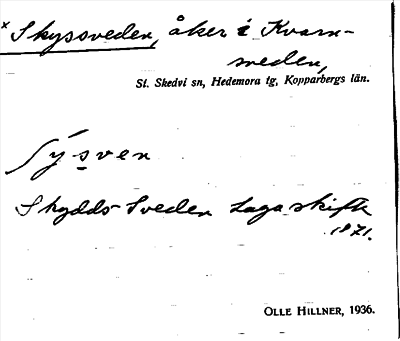 × Skyssveden, åker i Kvarn-
sveden,
St. Skedvi sn, Hedemora tg, Kopparbergs län.
Skydds Sveden Laga skifte
1871.
OLLE HILLNER, 1936.